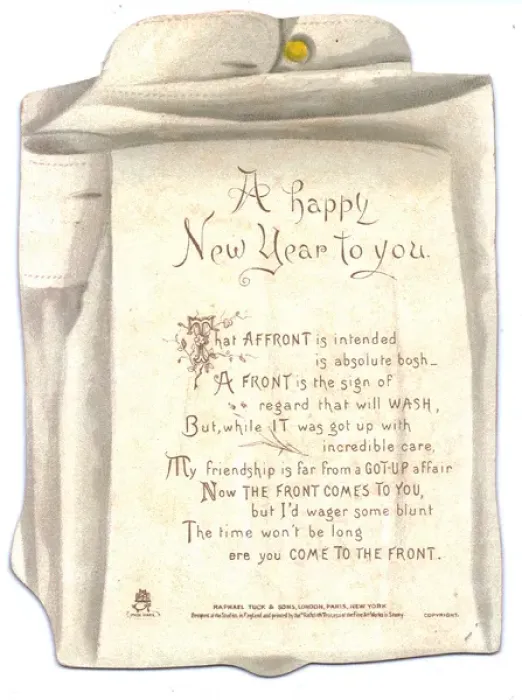 A happy
New Year to you.
That AFFRONT is intended
is absolute bosh_
A FRONT is the sign of
regard that will WASH,
But, while IT was got up with
incredible care,
My friendship is far from a GOT-UP affair
Now THE FRONT COMES TO YOU,
but I'd wager some blunt
The time won't be long
ere you COME TO THE FRONT.
RAPHAEL TUCK & SONS, LONDON, PARIS, NEW YORK
Designed at the Studios, in England and printed by the at the Fine Art Works in Saxony
COPYRIGHT.